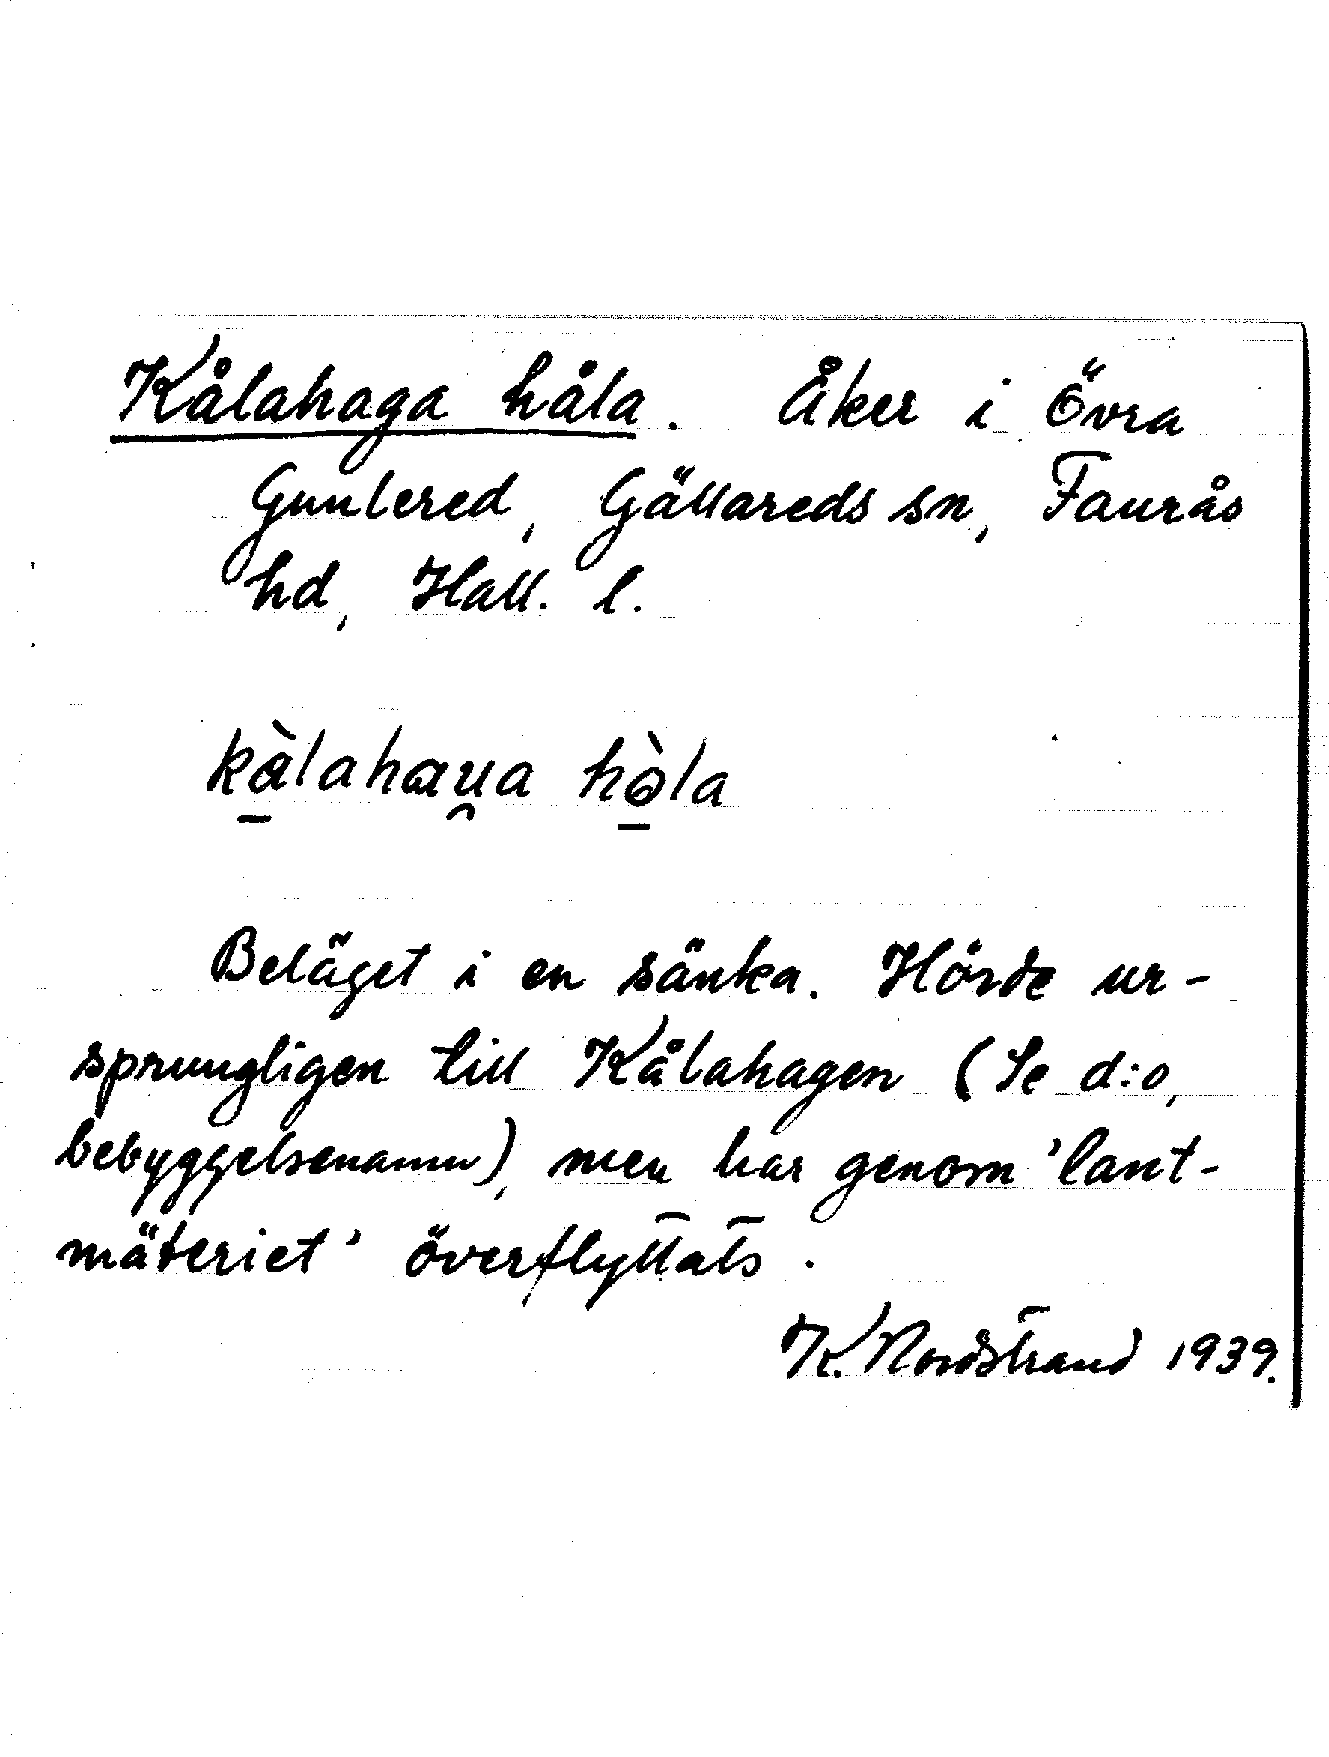 Kålahaga håla. Åker i Övra
Gunlered, Gällareds sn, Faurås
hd, Hall. l.
kàlahau̯a hòla
Beläget i en sänka. Hörde ur-
sprungligen till Kålahagen (Se d:o,
bebyggelsenamn), men har genom 'lant-
mäteriet' överflyttats.
K. Nordstrand 1939.